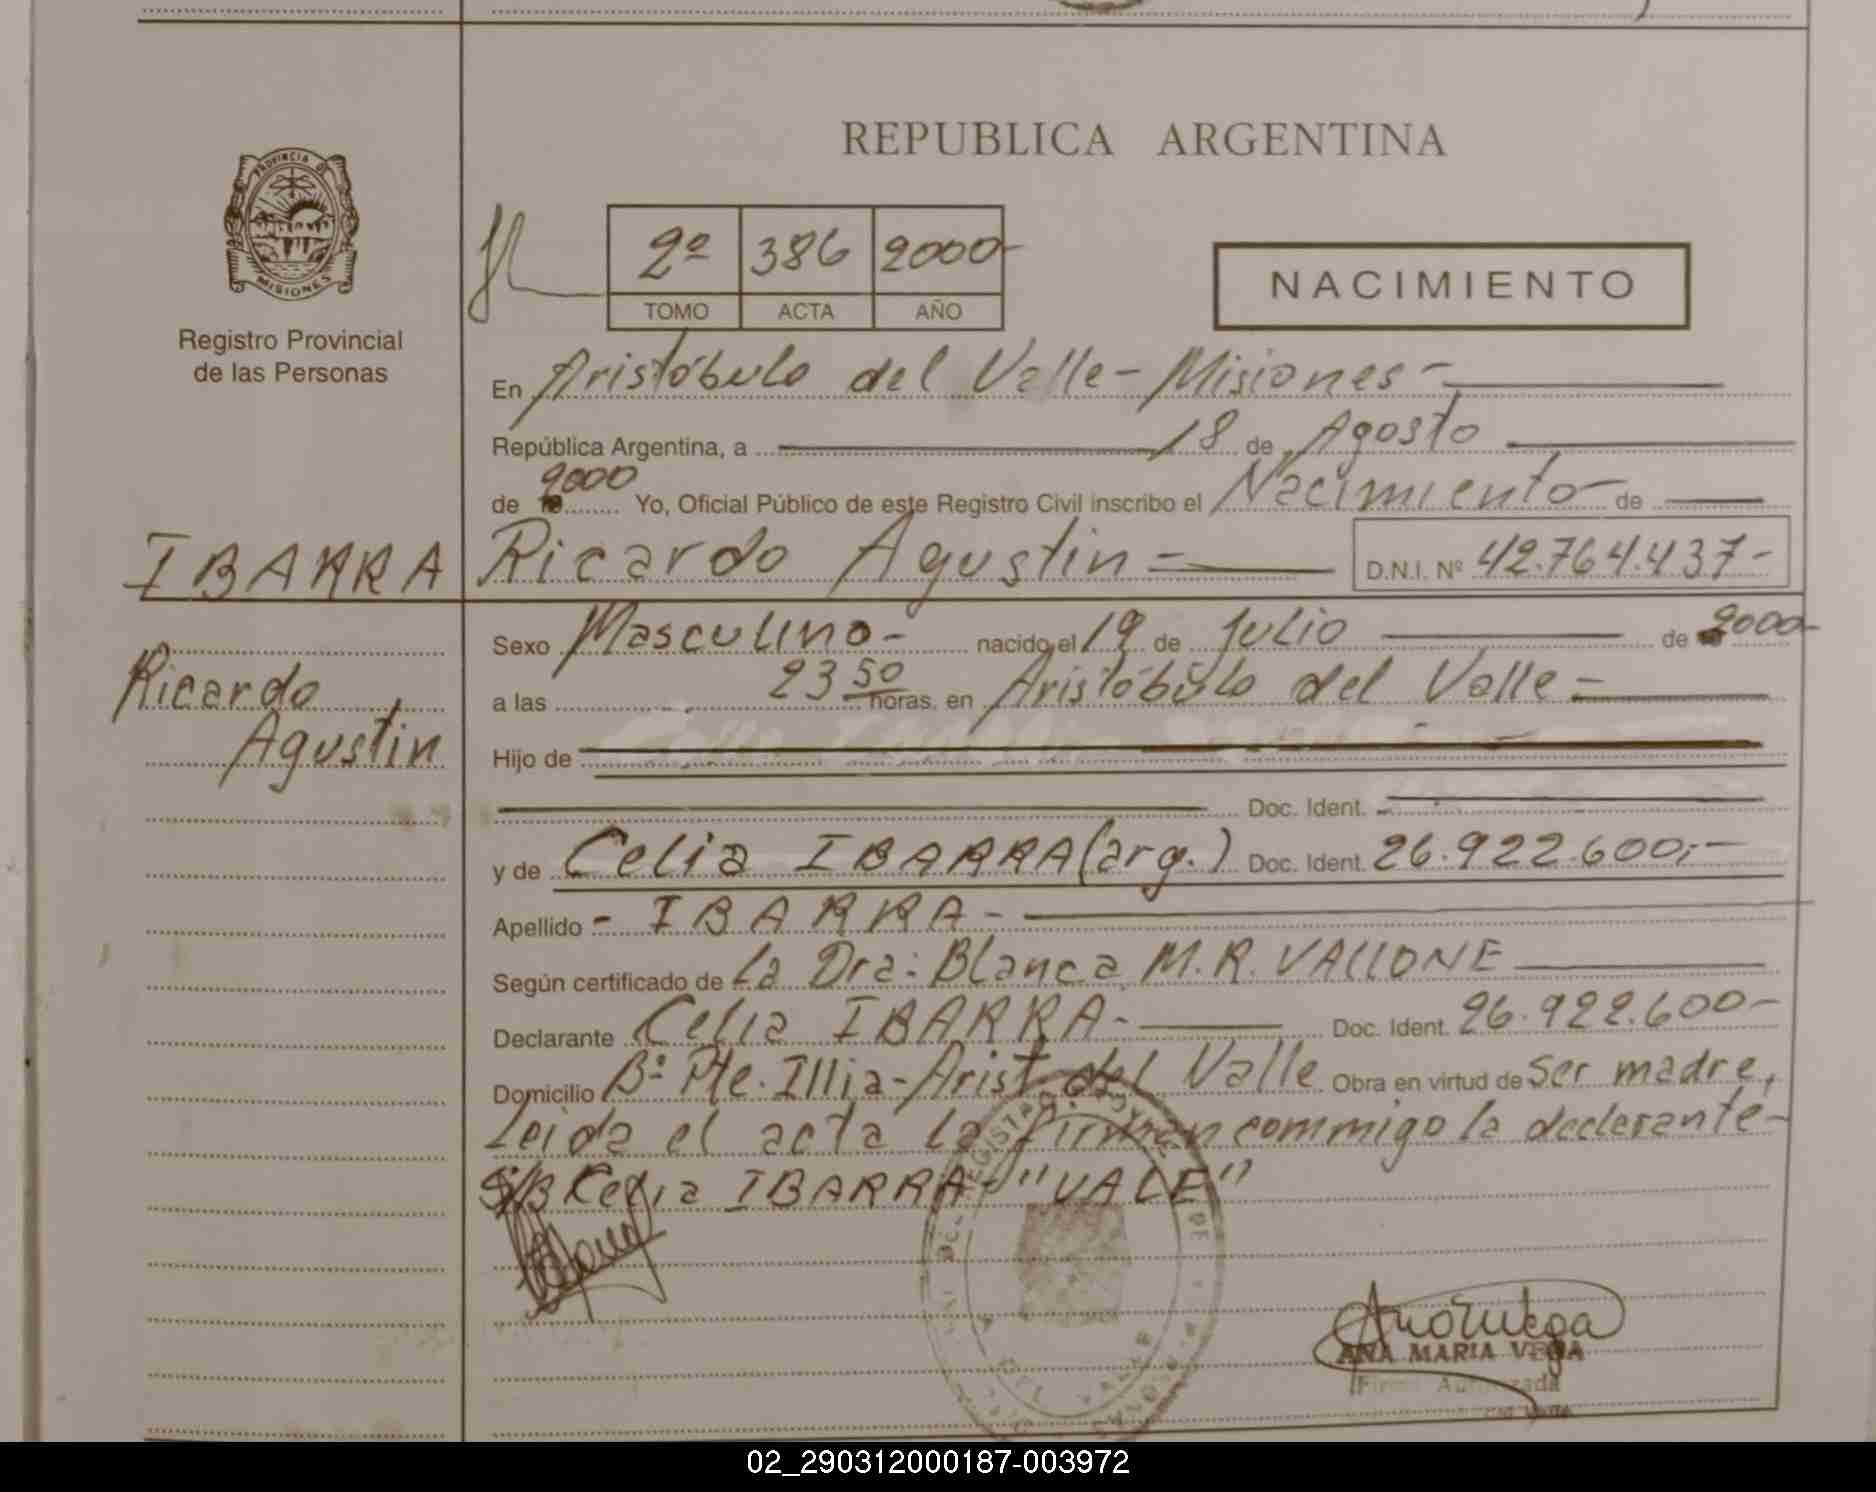 REPUBLICA ARGENTINA
PROVINCIA DE
MISIONES
Registro Provincial
de las Personas
2º 386 2000-
TOMO ACTA AÑO
NACIMIENTO
En Aristóbulo del Valle - Misiones -
República Argentina, a 18 de Agosto
de 2000 Yo, Oficial Público de este Registro Civil inscribo el Nacimiento de
IBARRA Ricardo Agustin = D.N.I. Nº 42.764.437-
Ricardo
Agustin
Sexo Masculino - nacido el 19 de Julio de 2000-
a las 23 50 horas, en Aristóbulo del Valle =
Hijo de
Doc. Ident.
y de Celia IBARRA (arg.) Doc. Ident. 26.922.600.-
Apellido - IBARRA -
Según certificado de La Dra: Blanca M.R. VALLONE
Declarante Celia IBARRA.- Doc. Ident. 26.922.600-
Domicilio Bº Pte. Illia - Arist. del Valle Obra en virtud de ser madre,
Leida el acta la firman commigo la declarante-
S/B Celia IBARRA - "VALE"
DEL VALLE
ANA MARIA VEGA
Firma Autorizada
02_290312000187-003972